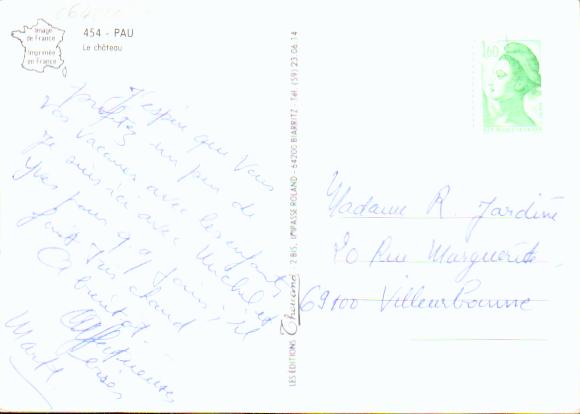 Image
de France
Imprimée
en France
454 - PAU
Le château
J'espère que vous
profitez un peu de
vos vacances avec les enfants
Je suis ici avec Michel et
Yves pour qq jours, il
fait très chaud
A bientôt.
Affectueuses
bises
Marth
LES ÉDITIONS Thouand 2 BIS, IMPASSE ROLAND - 64200 BIARRITZ - Tél. (59) 23.06.14
1,60
Madame R. Jardine
20 Rue Marguerite
69100 Villeurbanne